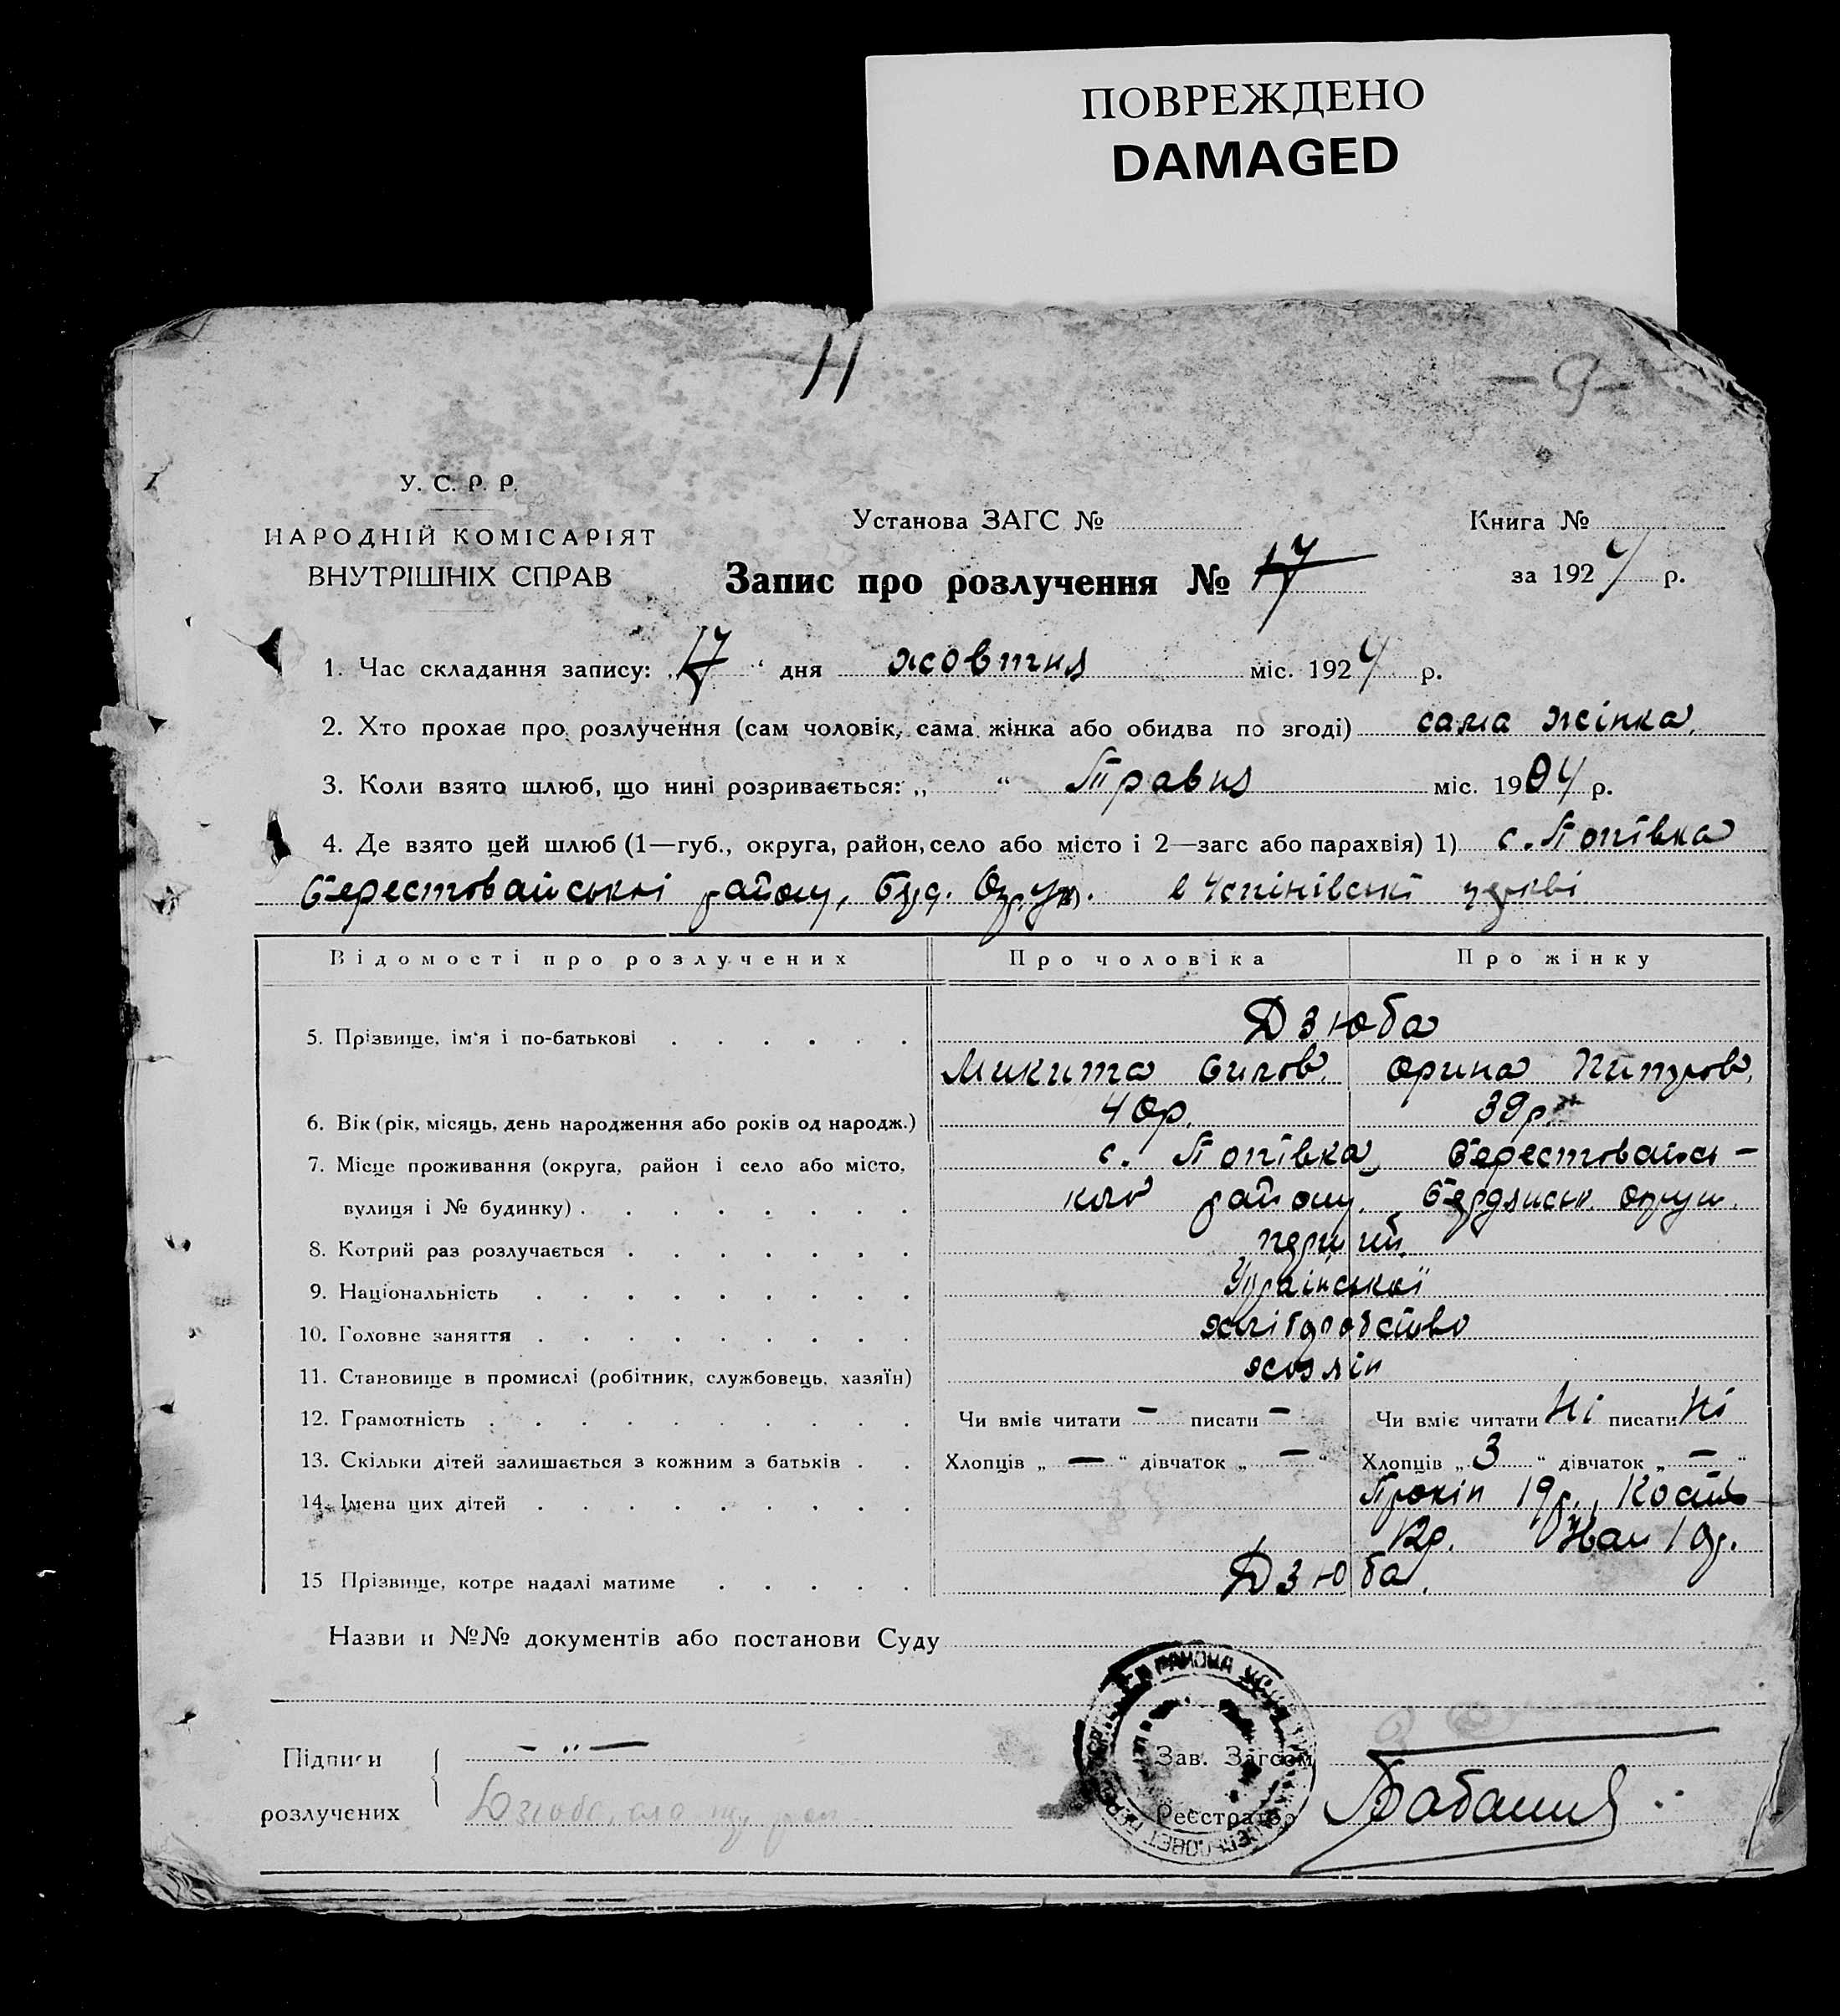 ПОВРЕЖДЕНО
DAMAGED
11
- 9 -
У. С. Р. Р.
НАРОДНІЙ КОМІСАРІЯТ
ВНУТРІШНІХ СПРАВ
Установа ЗАГС №
Книга №
Запис про розлучення № 17
за 1927 р.
1. Час складання запису: „17“ дня жовтня міс. 1927 р.
2. Хто прохає про розлучення (сам чоловік, сама жінка або обидва по згоді) сама жінка.
3. Коли взято шлюб, що нині розривається: „ “ Травня міс. 1904 р.
4. Де взято цей шлюб (1—губ., округа, район, село або місто і 2—загс або парахвія) 1) с. Попівка
Берестовайські району, в Успінівські церкві
Відомості про розлучених Про чоловіка Про жінку
5. Прізвище, ім'я і по-батькові Дзюба
Микита Силов. Орина Питров.
6. Вік (рік, місяць, день народження або років од народж.) 40р. 39р.
7. Місце проживання (округа, район і село або місто, с. Попівка, Берестовайсь-
вулиця і № будинку) кого району. Бердянськ. округи.
8. Котрий раз розлучається перший.
9. Національність Української
10. Головне заняття хліборобство
11. Становище в промислі (робітник, службовець, хазяїн) хозяін
12. Грамотність Чи вміє читати — писати — Чи вміє читати Ні писати Ні
13. Скільки дітей залишається з кожним з батьків Хлопців „ — “ дівчаток „ — “ Хлопців „ 3 “ дівчаток „ — “
14. Імена цих дітей Прокіп 19р., Кость
12р. 10р.
15 Прізвище, котре надалі матиме Дзюба.
Назви и №№ документів або постанови Суду
Підписи
розлучених
Дзюба
Зав. Загсом
Реєстратор
РАЙОНА